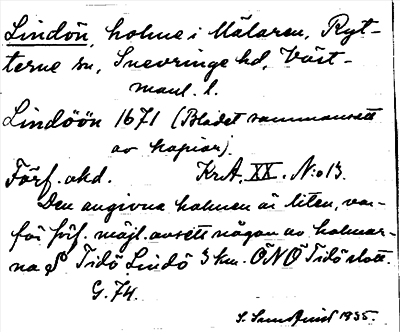 Lindön, holme i Mälaren, Ryt-
terne sn, Snevringe hd, Väst-
manl. l.
Lindöön 1671 (Bladet sammansatt
av kopior).
Förf. okd. KrA. XX. N:o 13.
Den angivna holmen är liten, var-
för förf. möjl. avsett någon av holmar-
na S Tidö Lindö 3 km. ÖNÖ Tidö slott.
G. 74.
S. Sundquist 1935.